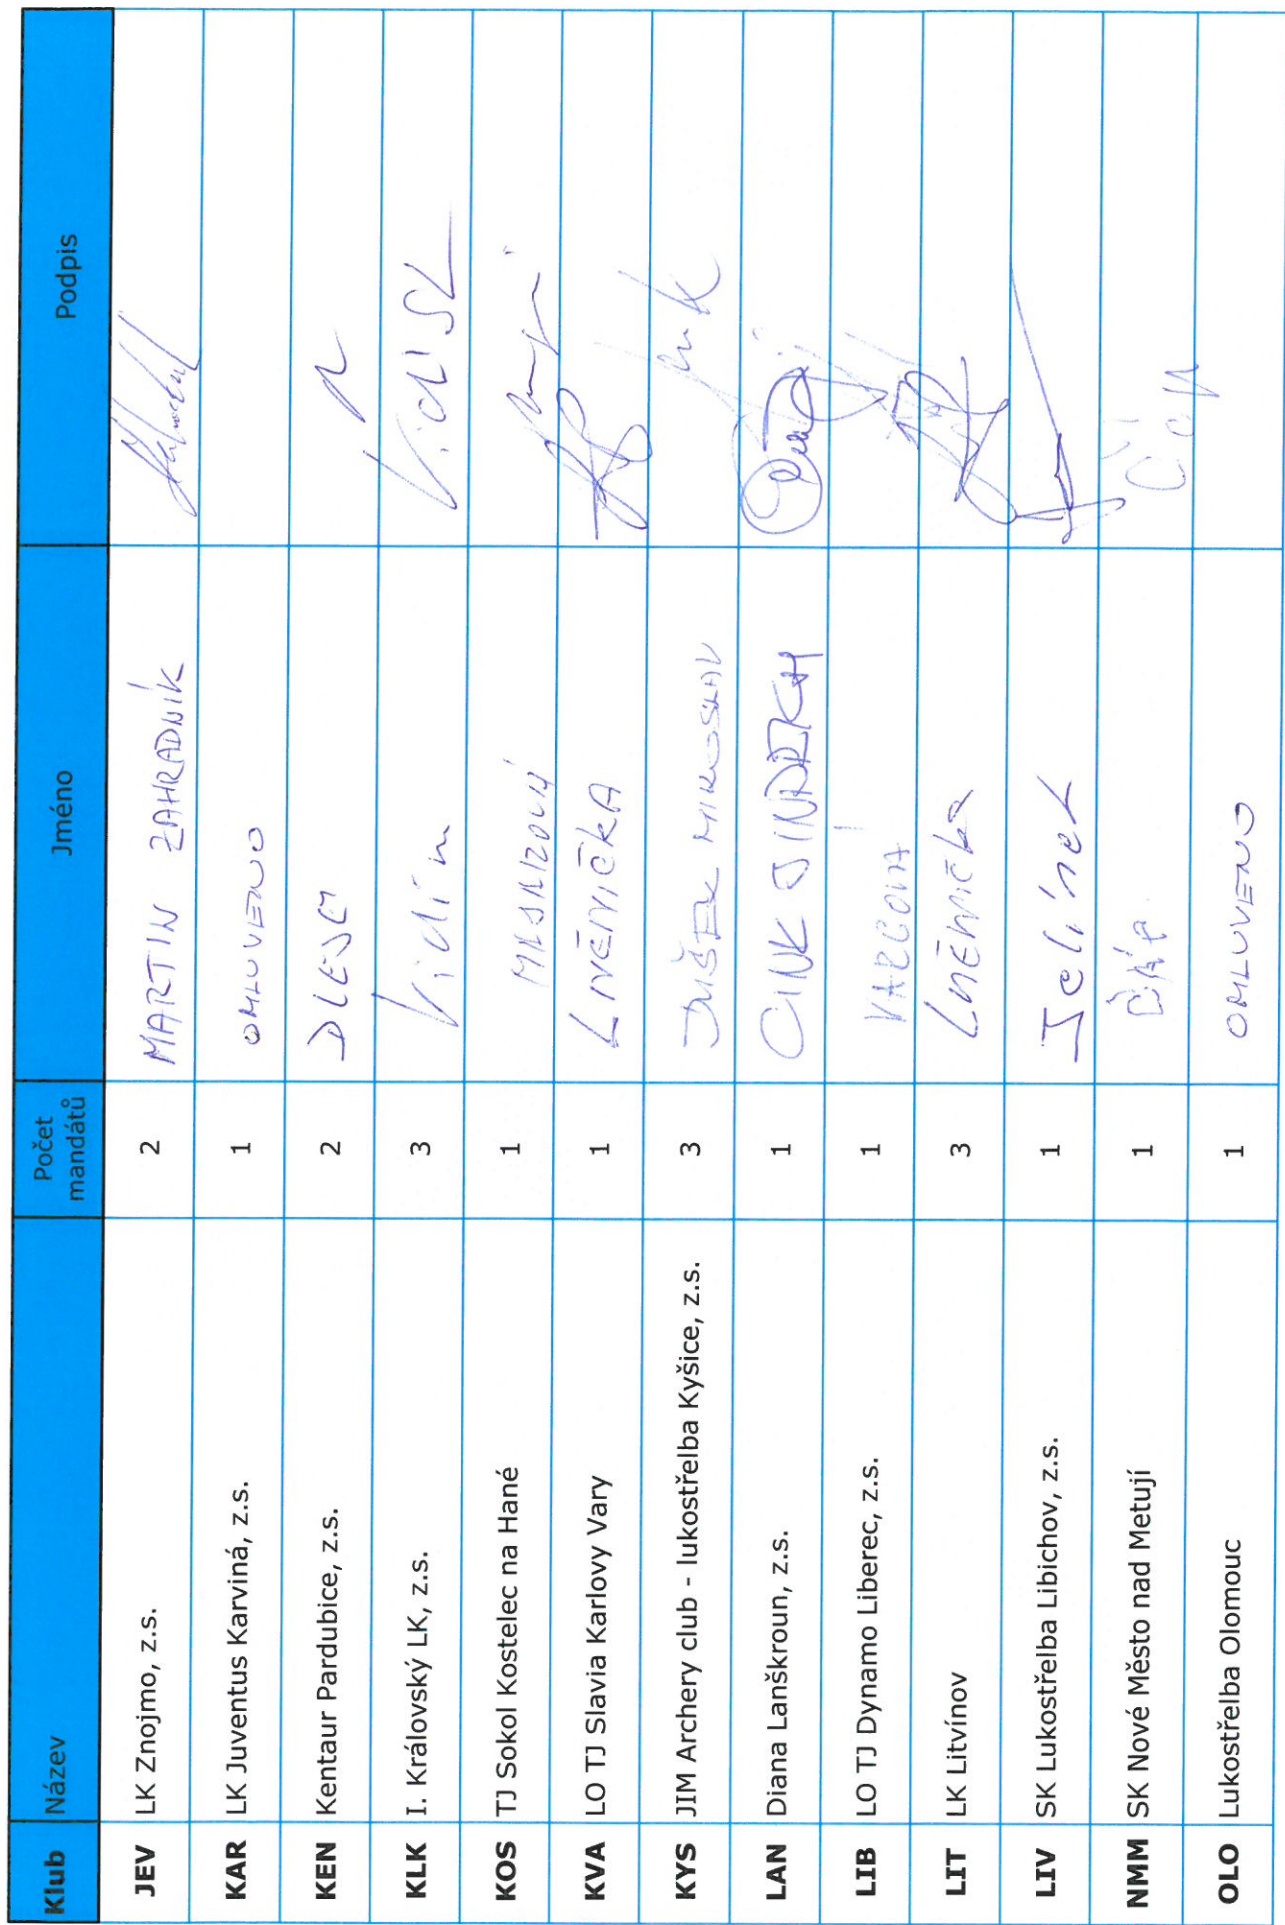 Klub Název Počet mandátů Jméno Podpis
JEV LK Znojmo, z.s. 2 MARTIN ZAHRADNÍK
KAR LK Juventus Karviná, z.s. 1 OMLUVENO
KEN Kentaur Pardubice, z.s. 2
KLK I. Královský LK, z.s. 3 Vidim
KOS TJ Sokol Kostelec na Hané 1
KVA LO TJ Slavia Karlovy Vary 1 LNĚNIČKA
KYS JIM Archery club - lukostřelba Kyšice, z.s. 3 DUŠEK MIROSLAV
LAN Diana Lanškroun, z.s. 1 CINK JINDŘICH
LIB LO TJ Dynamo Liberec, z.s. 1
LIT LK Litvínov 3 Lněnička
LIV SK Lukostřelba Libichov, z.s. 1 Jelínek
NMM SK Nové Město nad Metují 1
OLO Lukostřelba Olomouc 1 OMLUVENO